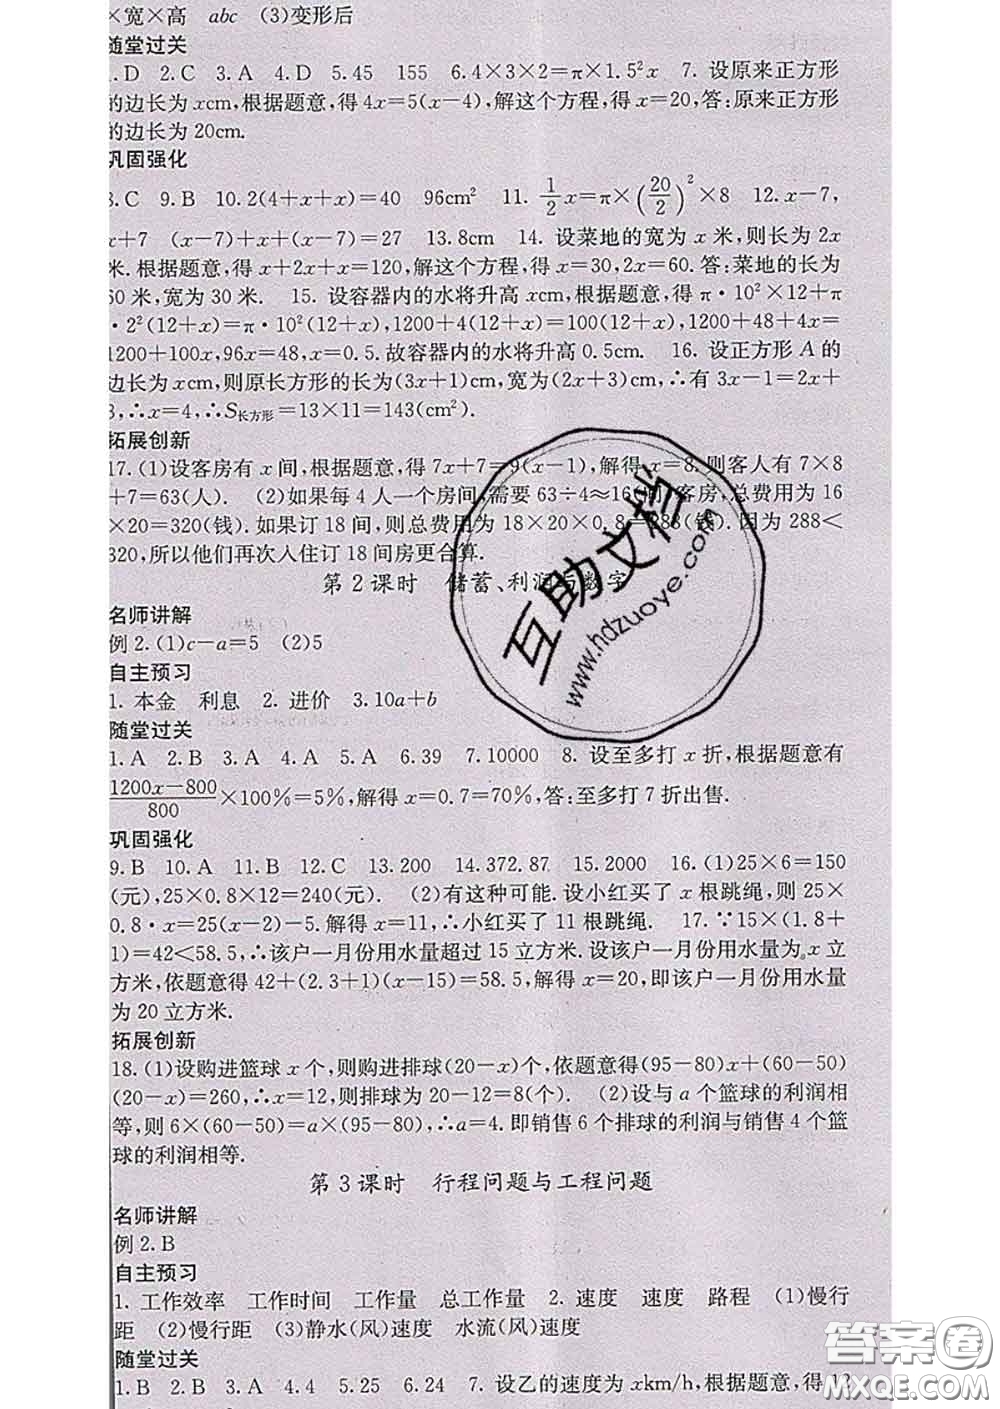 ×宽×高 abc (3)变形后
随堂过关
1.D 2.C 3.A 4.D 5.45 155 6.4×3×2=π×1.5²x 7. 设原来正方形
的边长为xcm,根据题意,得4x=5(x-4),解这个方程,得x=20,答:原来正方形
的边长为20cm.
巩固强化
8.C 9.B 10.2(4+x+x)=40 96cm² 11. 1/2 x=π×(20/2)²×8 12.x-7,
x+7 (x-7)+x+(x-7)=27 13.8cm 14. 设菜地的宽为x米,则长为2x
米.根据题意,得x+2x+x=120,解这个方程,得x=30,2x=60.答:菜地的长为
60米,宽为30米. 15. 设容器内的水将升高xcm,根据题意,得π·10²×12+π
·2²(12+x)=π·10²(12+x),1200+4(12+x)=100(12+x),1200+48+4x=
1200+100x,96x=48,x=0.5.故容器内的水将升高0.5cm. 16. 设正方形A的
边长为xcm,则原长方形的长为(3x+1)cm,宽为(2x+3)cm,∴有3x-1=2x+
3,∴x=4,∴S长方形=13×11=143(cm²).
拓展创新
17.(1)设客房有x间,根据题意,得7x+7=9(x-1),解得x=8.则客人有7×8
+7=63(人). (2)如果每4人一个房间,需要63÷4≈16(间)客房,总费用为16
×20=320(钱).如果订18间,则总费用为18×20×0.8=288(钱).因为288<
320,所以他们再次入住订18间房更合算.
第2课时 储蓄、利润与数字
名师讲解
例2.(1)c-a=5 (2)5
自主预习
1. 本金 利息 2. 进价 3.10a+b
随堂过关
1.A 2.B 3.A 4.A 5.A 6.39 7.10000 8. 设至多打x折,根据题意有
(1200x-800)/800×100%=5%,解得x=0.7=70%,答:至多打7折出售.
巩固强化
9.B 10.A 11.B 12.C 13.200 14.372.87 15.2000 16.(1)25×6=150
(元),25×0.8×12=240(元). (2)有这种可能.设小红买了x根跳绳,则25×
0.8·x=25(x-2)-5.解得x=11,∴小红买了11根跳绳. 17.∵15×(1.8+
1)=42<58.5,∴该户一月份用水量超过15立方米.设该户一月份用水量为x立
方米,依题意得42+(2.3+1)(x-15)=58.5,解得x=20,即该户一月份用水量
为20立方米.
拓展创新
18.(1)设购进篮球x个,则购进排球(20-x)个,依题意得(95-80)x+(60-50)
(20-x)=260,∴x=12,则排球为20-12=8(个). (2)设与a个篮球的利润相
等,则6×(60-50)=a×(95-80),∴a=4.即销售6个排球的利润与销售4个篮
球的利润相等.
第3课时 行程问题与工程问题
名师讲解
例2.B
自主预习
1. 工作效率 工作时间 工作量 总工作量 2. 速度 速度 路程 (1)慢行
距 (2)慢行距 (3)静水(风)速度 水流(风)速度
随堂过关
1.B 2.B 3.A 4.4 5.25 6.24 7. 设乙的速度为xkm/h,根据题意,得12
互助文档
www.hdzuoye.com
答案圈
MXQE.COM